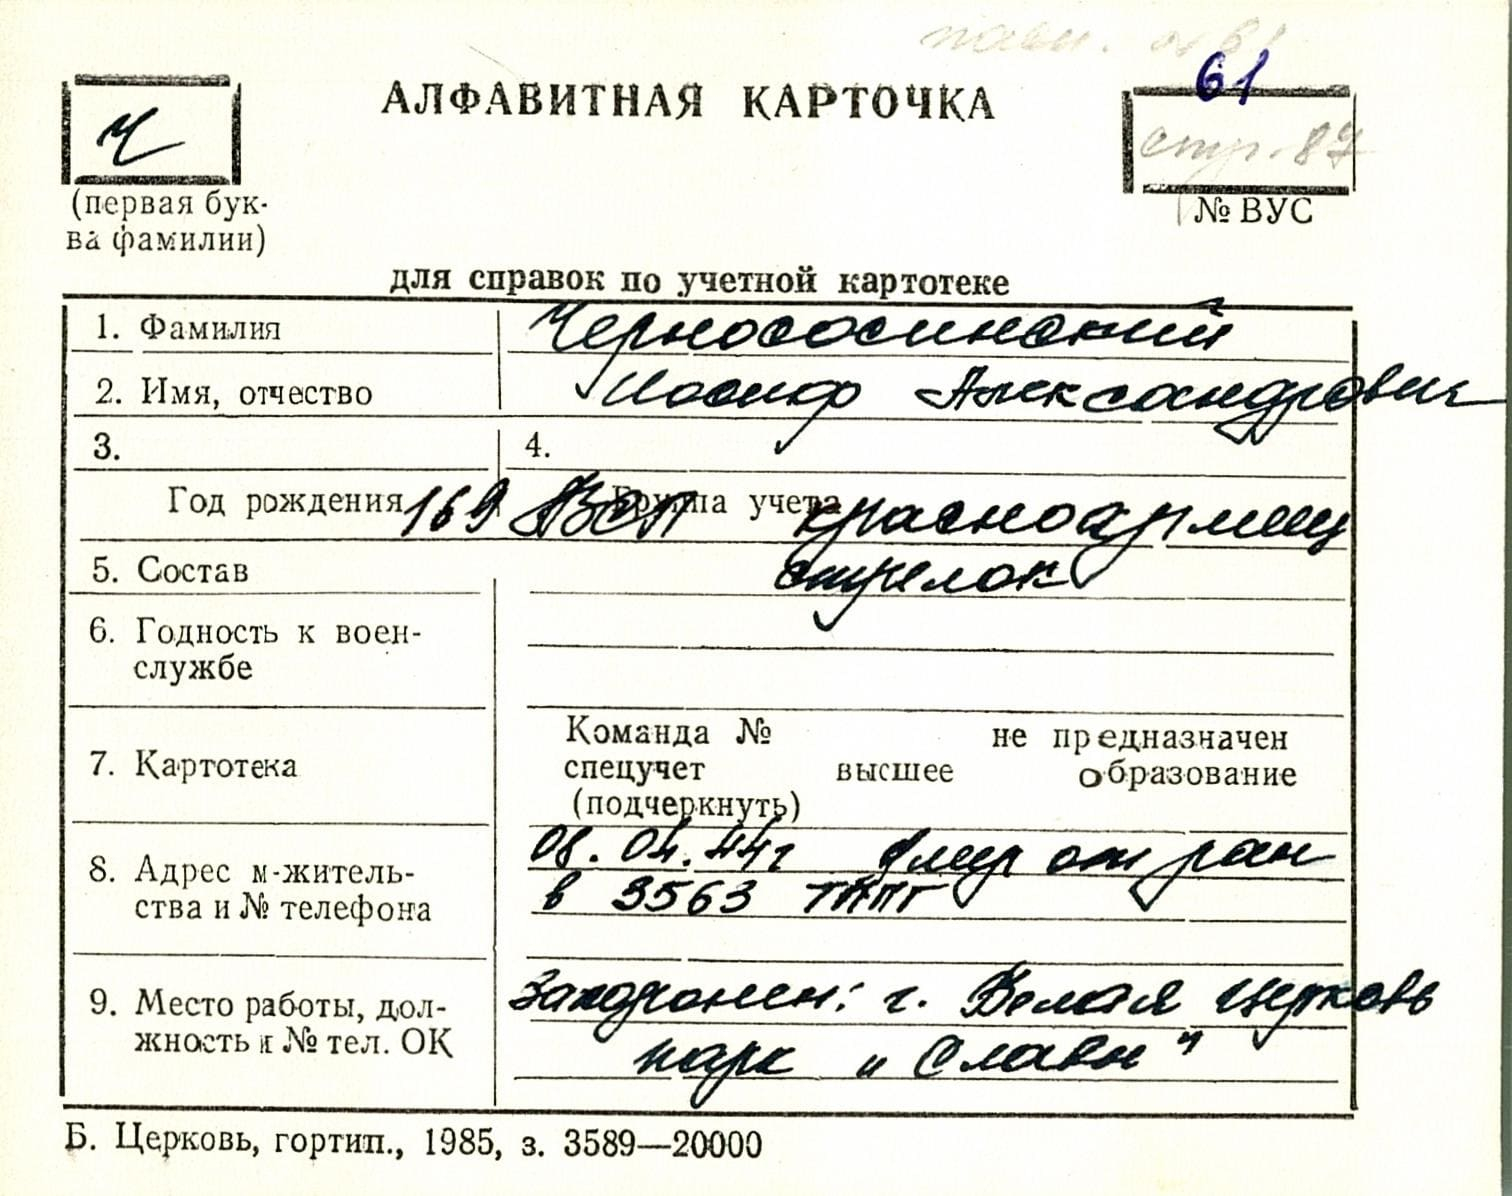 61
Ч
АЛФАВИТНАЯ КАРТОЧКА
стр. 87
(первая бук-
ва фамилии)
№ ВУС
для справок по учетной картотеке
1. Фамилия Чернососинский
2. Имя, отчество Иосиф Александрович
3. 4.
Год рождения 169 Группа учета красноармеец
5. Состав стрелок
6. Годность к воен-
службе
Команда № не предназначен
7. Картотека спецучет высшее образование
(подчеркнуть)
8. Адрес м-житель- 08.04.44г умер от ран
ства и № телефона в 3563 ТППГ
9. Место работы, дол- Захоронен: г. Белая Церковь
жность и № тел. ОК парк „Славы"
Б. Церковь, гортип., 1985, з. 3589—20000